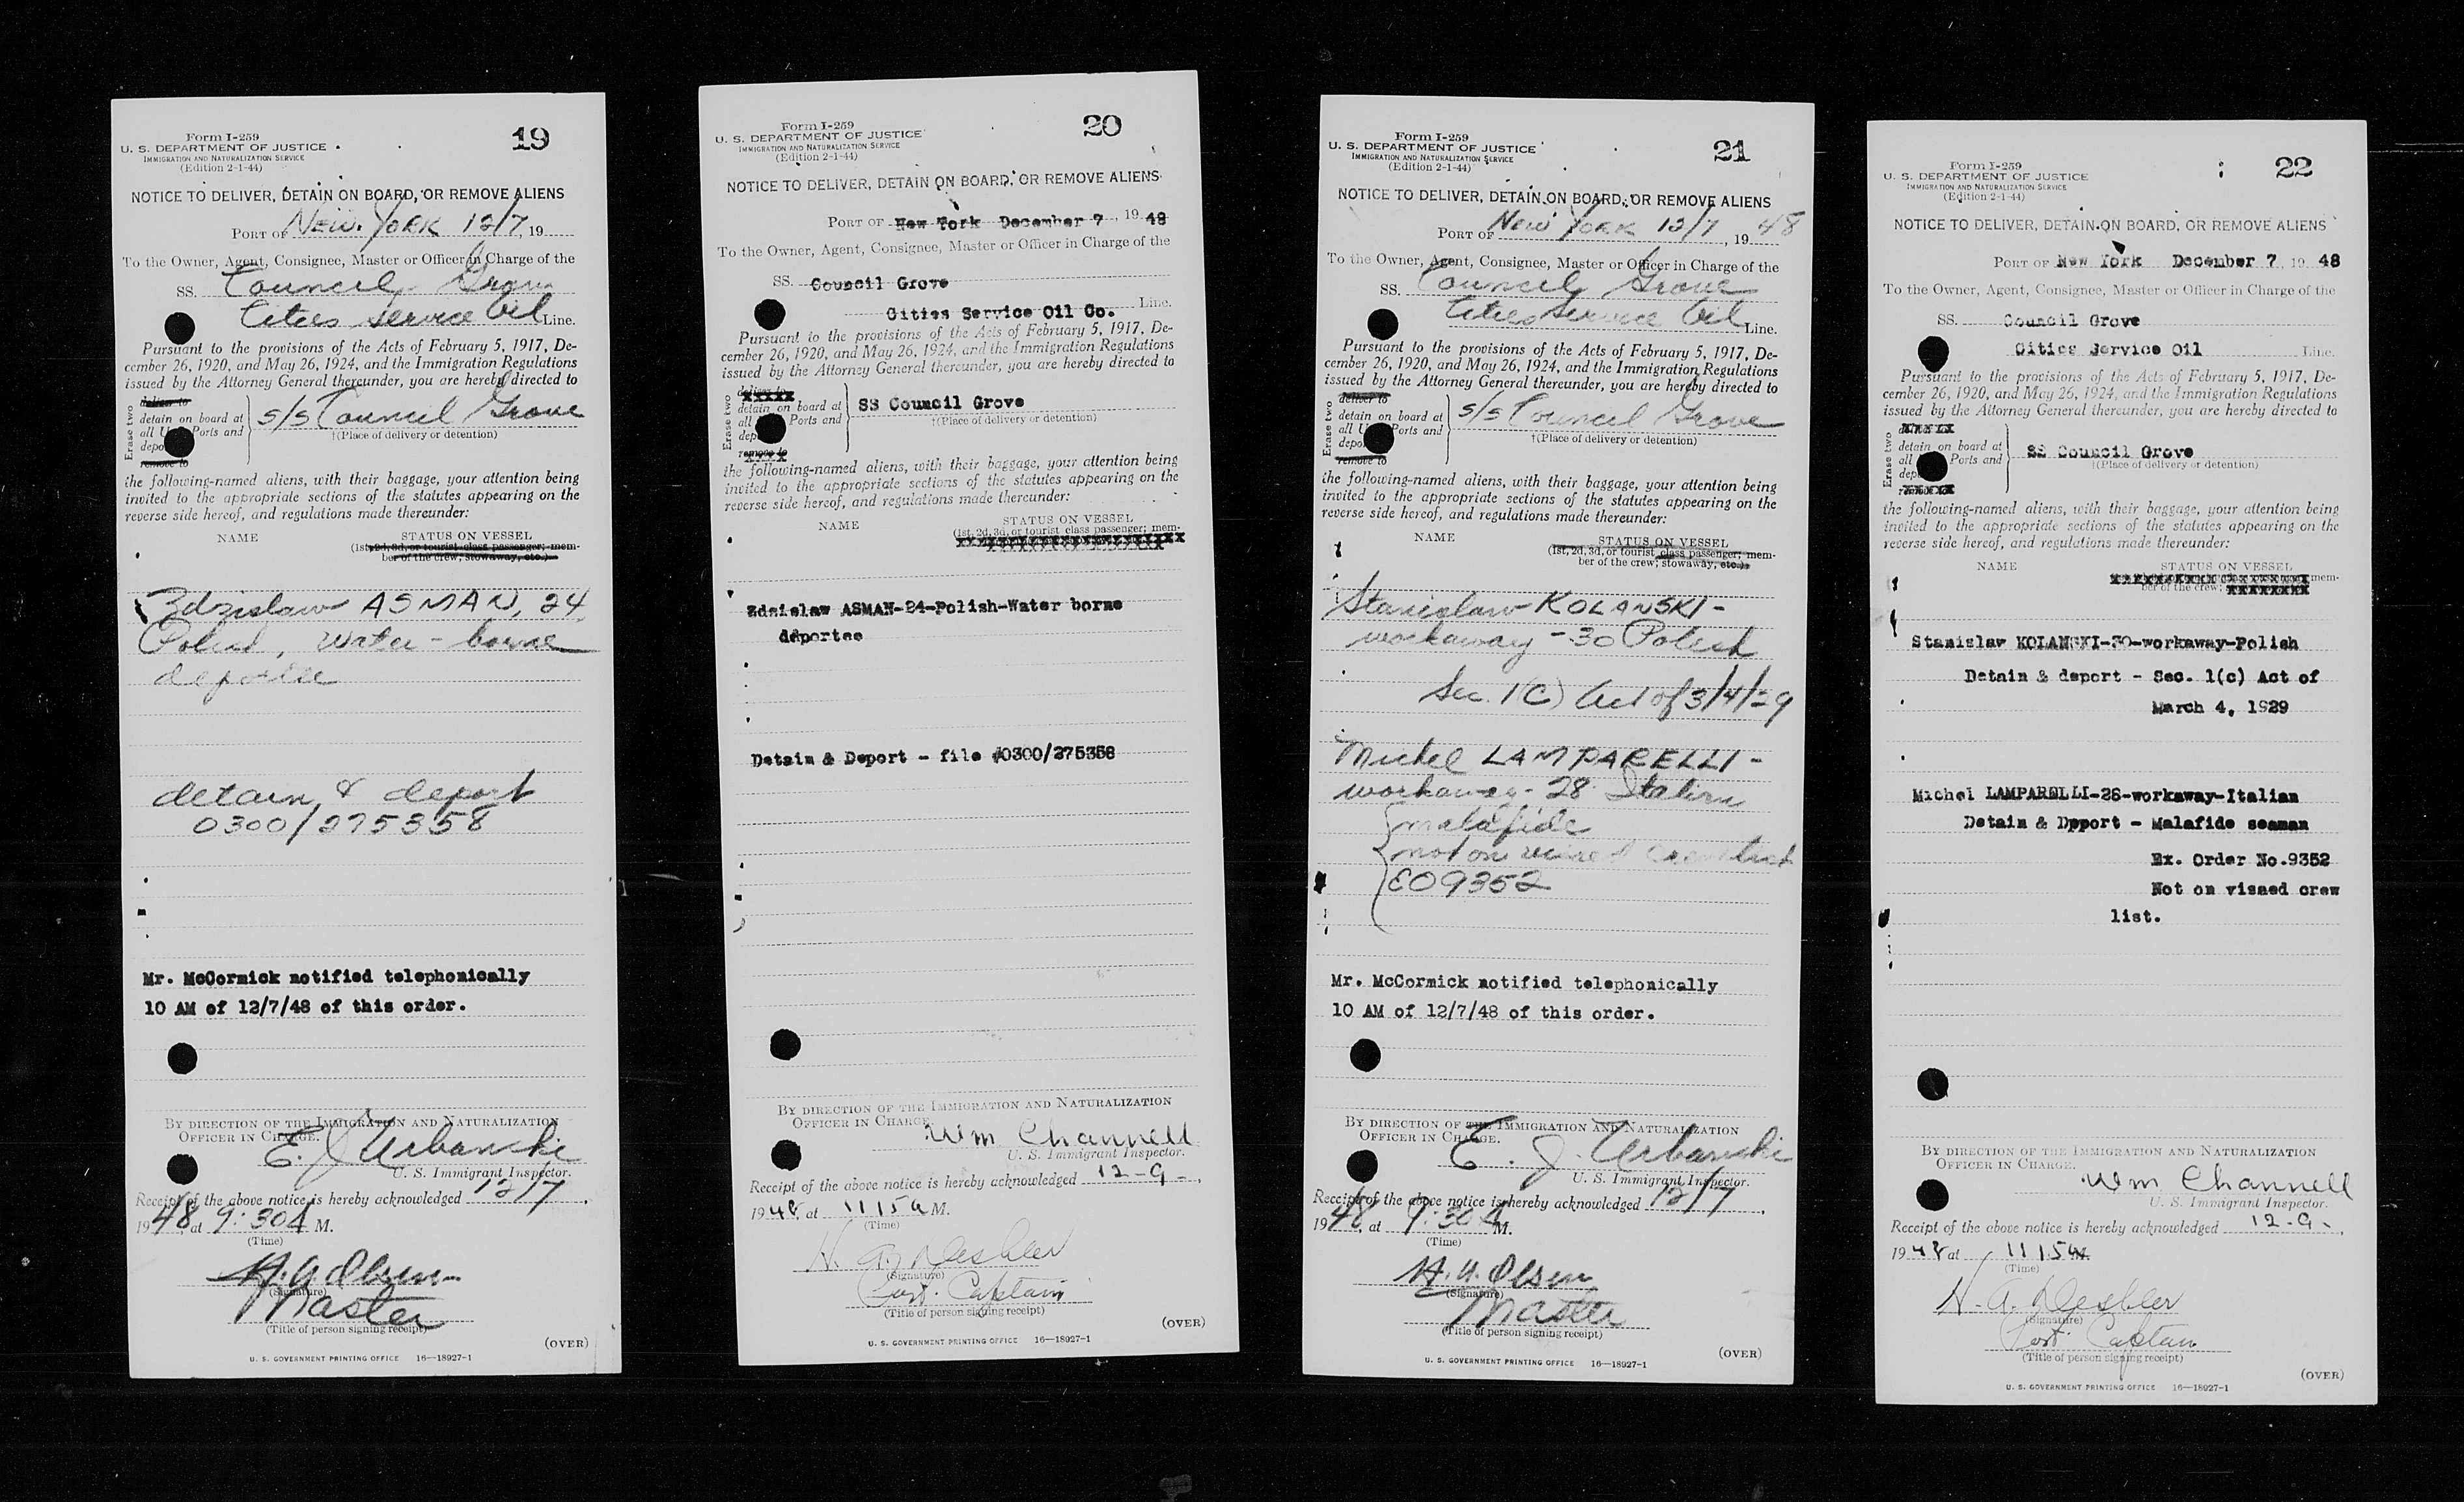 Form I-259
19
U. S. DEPARTMENT OF JUSTICE
IMMIGRATION AND NATURALIZATION SERVICE
(Edition 2-1-44)
NOTICE TO DELIVER, DETAIN ON BOARD, OR REMOVE ALIENS
PORT OF NEW YORK 12/7, 19
To the Owner, Agent, Consignee, Master or Officer in Charge of the
SS. Council Grove
Cities Service Oil Line.
Pursuant to the provisions of the Acts of February 5, 1917, De-
cember 26, 1920, and May 26, 1924, and the Immigration Regulations
issued by the Attorney General thereunder, you are hereby directed to
Erase two
deliver to
detain on board at
all U Ports and
depo
remove to
S/S Council Grove
†(Place of delivery or detention)
the following-named aliens, with their baggage, your attention being
invited to the appropriate sections of the statutes appearing on the
reverse side hereof, and regulations made thereunder:
NAME STATUS ON VESSEL
(1st, 2d, 3d, or tourist class passenger; mem-
ber of the crew; stowaway, etc.)
Zdzislaw ASMAN, 24
Polish, water-borne
deportee
detain & deport
0300/275358
Mr. McCormick notified telephonically
10 AM of 12/7/48 of this order.
BY DIRECTION OF THE IMMIGRATION AND NATURALIZATION
OFFICER IN CHARGE.
E. J. Urbanski
U. S. Immigrant Inspector.
Receipt of the above notice is hereby acknowledged 12/7,
1948, at 9:30A M.
(Time)
H. A. Olsen
(Signature)
Master
(Title of person signing receipt)
(OVER)
U. S. GOVERNMENT PRINTING OFFICE 16—18927-1
Form I-259
20
U. S. DEPARTMENT OF JUSTICE
IMMIGRATION AND NATURALIZATION SERVICE
(Edition 2-1-44)
NOTICE TO DELIVER, DETAIN ON BOARD, OR REMOVE ALIENS
PORT OF New York December 7, 1948
To the Owner, Agent, Consignee, Master or Officer in Charge of the
SS. Council Grove
Cities Service Oil Co. Line.
Pursuant to the provisions of the Acts of February 5, 1917, De-
cember 26, 1920, and May 26, 1924, and the Immigration Regulations
issued by the Attorney General thereunder, you are hereby directed to
Erase two
deliver to
detain on board at
all Ports and
dep
remove to
SS Council Grove
†(Place of delivery or detention)
the following-named aliens, with their baggage, your attention being
invited to the appropriate sections of the statutes appearing on the
reverse side hereof, and regulations made thereunder:
NAME STATUS ON VESSEL
(1st, 2d, 3d, or tourist class passenger; mem-
Zdzislaw ASMAN-24-Polish-Water borne
deportee
Detain & Deport - file #0300/275358
BY DIRECTION OF THE IMMIGRATION AND NATURALIZATION
OFFICER IN CHARGE
Wm Channell
U. S. Immigrant Inspector.
Receipt of the above notice is hereby acknowledged 12-9-,
1948, at 1115a M.
(Time)
(Signature)
Port Captain
(Title of person signing receipt)
(OVER)
U. S. GOVERNMENT PRINTING OFFICE 16—18927-1
Form I-259
21
U. S. DEPARTMENT OF JUSTICE
IMMIGRATION AND NATURALIZATION SERVICE
(Edition 2-1-44)
NOTICE TO DELIVER, DETAIN ON BOARD, OR REMOVE ALIENS
PORT OF NEW YORK 12/7, 1948
To the Owner, Agent, Consignee, Master or Officer in Charge of the
SS. Council Grove
Cities Service Oil Line.
Pursuant to the provisions of the Acts of February 5, 1917, De-
cember 26, 1920, and May 26, 1924, and the Immigration Regulations
issued by the Attorney General thereunder, you are hereby directed to
Erase two
deliver to
detain on board at
all U Ports and
depo
remove to
S/S Council Grove
†(Place of delivery or detention)
the following-named aliens, with their baggage, your attention being
invited to the appropriate sections of the statutes appearing on the
reverse side hereof, and regulations made thereunder:
NAME STATUS ON VESSEL
(1st, 2d, 3d, or tourist class passenger; mem-
ber of the crew; stowaway, etc.)
Stanislaw KOLANSKI-
workaway - 30 Polish
Sec. 1(C) Act of 3/4/29
Michel LAMPARELLI-
workaway- 28 Italian
malafide
not on visaed crew list
EO9352
Mr. McCormick notified telephonically
10 AM of 12/7/48 of this order.
BY DIRECTION OF THE IMMIGRATION AND NATURALIZATION
OFFICER IN CHARGE.
E. J. Urbanski
U. S. Immigrant Inspector.
Receipt of the above notice is hereby acknowledged 12/7,
1948, at 9:30A M.
(Time)
H. A. Olsen
(Signature)
Master
(Title of person signing receipt)
(OVER)
U. S. GOVERNMENT PRINTING OFFICE 16—18927-1
Form I-259
22
U. S. DEPARTMENT OF JUSTICE
IMMIGRATION AND NATURALIZATION SERVICE
(Edition 2-1-44)
NOTICE TO DELIVER, DETAIN ON BOARD, OR REMOVE ALIENS
PORT OF New York December 7, 1948
To the Owner, Agent, Consignee, Master or Officer in Charge of the
SS. Council Grove
Cities Service Oil Line.
Pursuant to the provisions of the Acts of February 5, 1917, De-
cember 26, 1920, and May 26, 1924, and the Immigration Regulations
issued by the Attorney General thereunder, you are hereby directed to
Erase two
detain on board at
all Ports and
dep
SS Council Grove
†(Place of delivery or detention)
the following-named aliens, with their baggage, your attention being
invited to the appropriate sections of the statutes appearing on the
reverse side hereof, and regulations made thereunder:
NAME STATUS ON VESSEL
mem-
ber of the crew;
Stanislav KOLANSKI-30-workaway-Polish
Detain & deport - Sec. 1(c) Act of
March 4, 1929
Michel LAMPARELLI-28-workaway-Italian
Detain & Dpport - Malafide seaman
Ex. Order No.9352
Not on visaed crew
list.
BY DIRECTION OF THE IMMIGRATION AND NATURALIZATION
OFFICER IN CHARGE.
Wm Channell
U. S. Immigrant Inspector.
Receipt of the above notice is hereby acknowledged 12-9-,
1948 at 1115a M.
(Time)
(Signature)
Port Captain
(Title of person signing receipt)
(OVER)
U. S. GOVERNMENT PRINTING OFFICE 16—18927-1